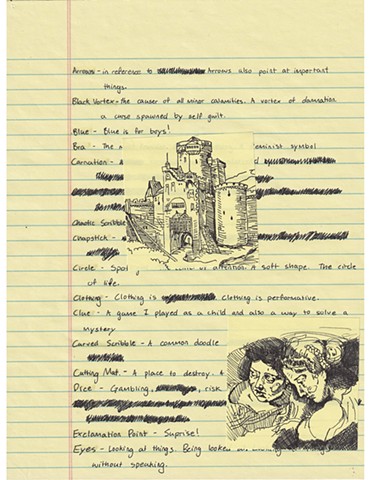 Arrows - in reference to Arrows also point at important
things.
Black Vortex - the causer of all minor calamities. A vortex of damnation
a curse spawned by self guilt.
Blue - Blue is for boys!
Bra - The feminist symbol
Carnation -
Chaotic Scribble
Chapstick -
Circle - Spot attention. A soft shape. The circle
of life.
Clothing - Clothing is Clothing is performative.
Clue - A game I played as a child and also a way to solve a
mystery
Carved Scribble - A common doodle
Cutting Mat - A place to destroy.
Dice - Gambling, risk
Exclamation Point - Suprise!
Eyes - Looking at things. Being
without speaking.